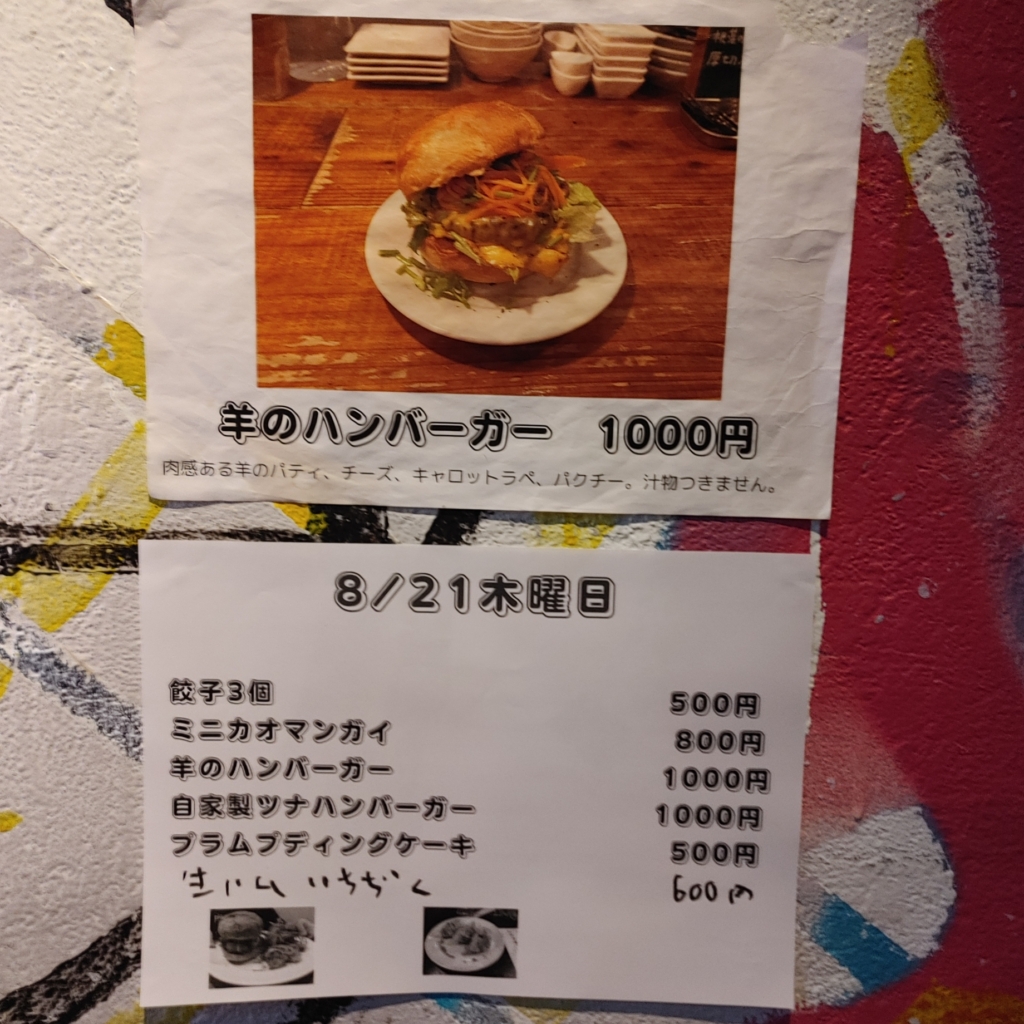 羊のハンバーガー 1000円
肉感ある羊のパティ、チーズ、キャロットラペ、パクチー。汁物つきません。
8/21木曜日
餃子3個 500円
ミニカオマンガイ 800円
羊のハンバーガー 1000円
自家製ツナハンバーガー 1000円
プラムプディングケーキ 500円
生ハム いちぢく 600円